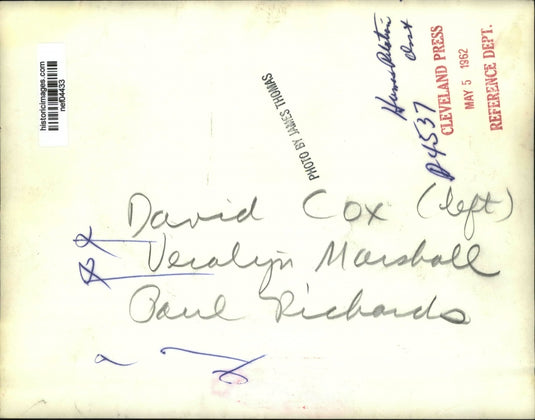 historicimages.com
nef04433
PHOTO BY JAMES THOMAS
D4537
CLEVELAND PRESS
MAY 5 1962
REFERENCE DEPT.
David Cox (left)
Veralyn Marshall
Paul Richards